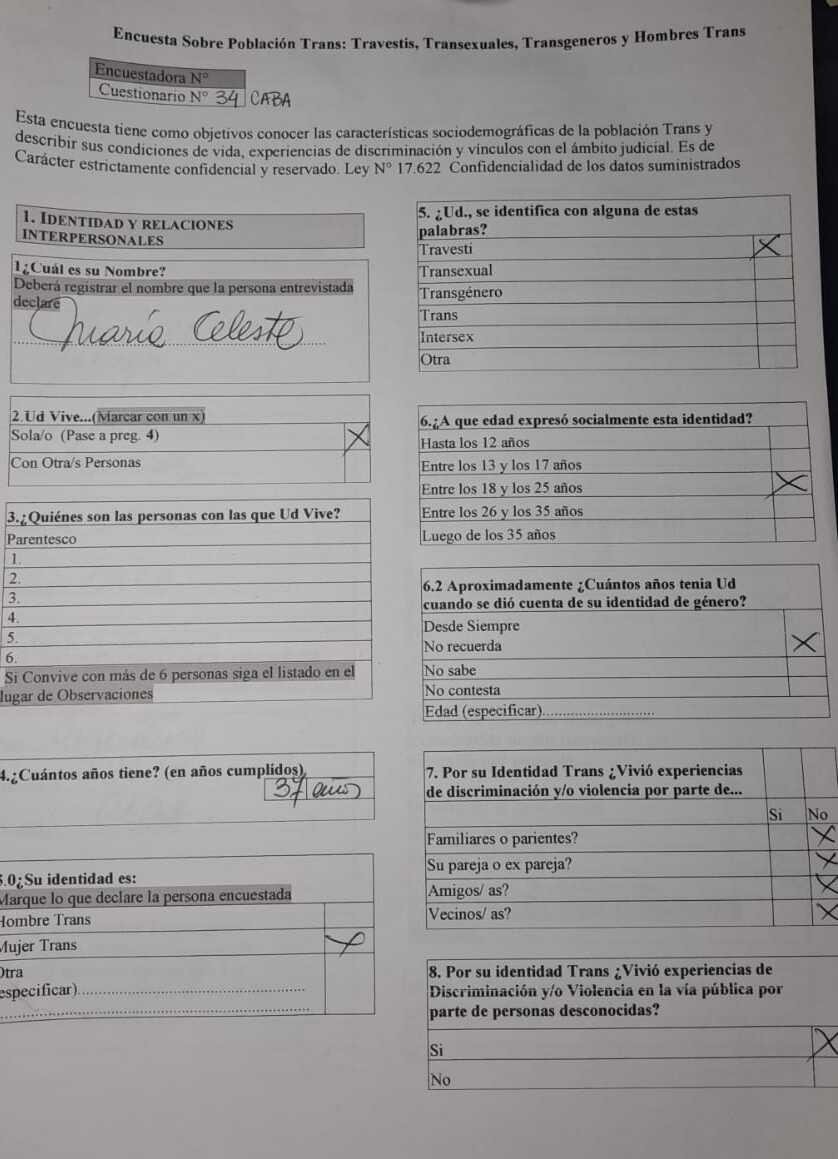 Encuesta Sobre Población Trans: Travestis, Transexuales, Transgeneros y Hombres Trans
Encuestadora N°
Cuestionario N° 34 CABA
Esta encuesta tiene como objetivos conocer las características sociodemográficas de la población Trans y
describir sus condiciones de vida, experiencias de discriminación y vínculos con el ámbito judicial. Es de
Carácter estrictamente confidencial y reservado. Ley N° 17.622 Confidencialidad de los datos suministrados
1. IDENTIDAD Y RELACIONES
INTERPERSONALES
1¿Cuál es su Nombre?
Deberá registrar el nombre que la persona entrevistada
declare
María Celeste
2.Ud Vive...(Marcar con un x)
Sola/o (Pase a preg. 4) X
Con Otra/s Personas
3.¿Quiénes son las personas con las que Ud Vive?
Parentesco
1.
2.
3.
4.
5.
6.
Si Convive con más de 6 personas siga el listado en el
lugar de Observaciones
4.¿Cuántos años tiene? (en años cumplidos)
37 años
5.0¿Su identidad es:
Marque lo que declare la persona encuestada
Hombre Trans
Mujer Trans X
Otra
especificar)
5. ¿Ud., se identifica con alguna de estas
palabras?
Travesti X
Transexual
Transgénero
Trans
Intersex
Otra
6.¿A que edad expresó socialmente esta identidad?
Hasta los 12 años
Entre los 13 y los 17 años
Entre los 18 y los 25 años X
Entre los 26 y los 35 años
Luego de los 35 años
6.2 Aproximadamente ¿Cuántos años tenia Ud
cuando se dió cuenta de su identidad de género?
Desde Siempre
No recuerda X
No sabe
No contesta
Edad (especificar)
7. Por su Identidad Trans ¿Vivió experiencias
de discriminación y/o violencia por parte de...
Si No
Familiares o parientes? X
Su pareja o ex pareja? X
Amigos/ as? X
Vecinos/ as? X
8. Por su identidad Trans ¿Vivió experiencias de
Discriminación y/o Violencia en la vía pública por
parte de personas desconocidas?
Si X
No